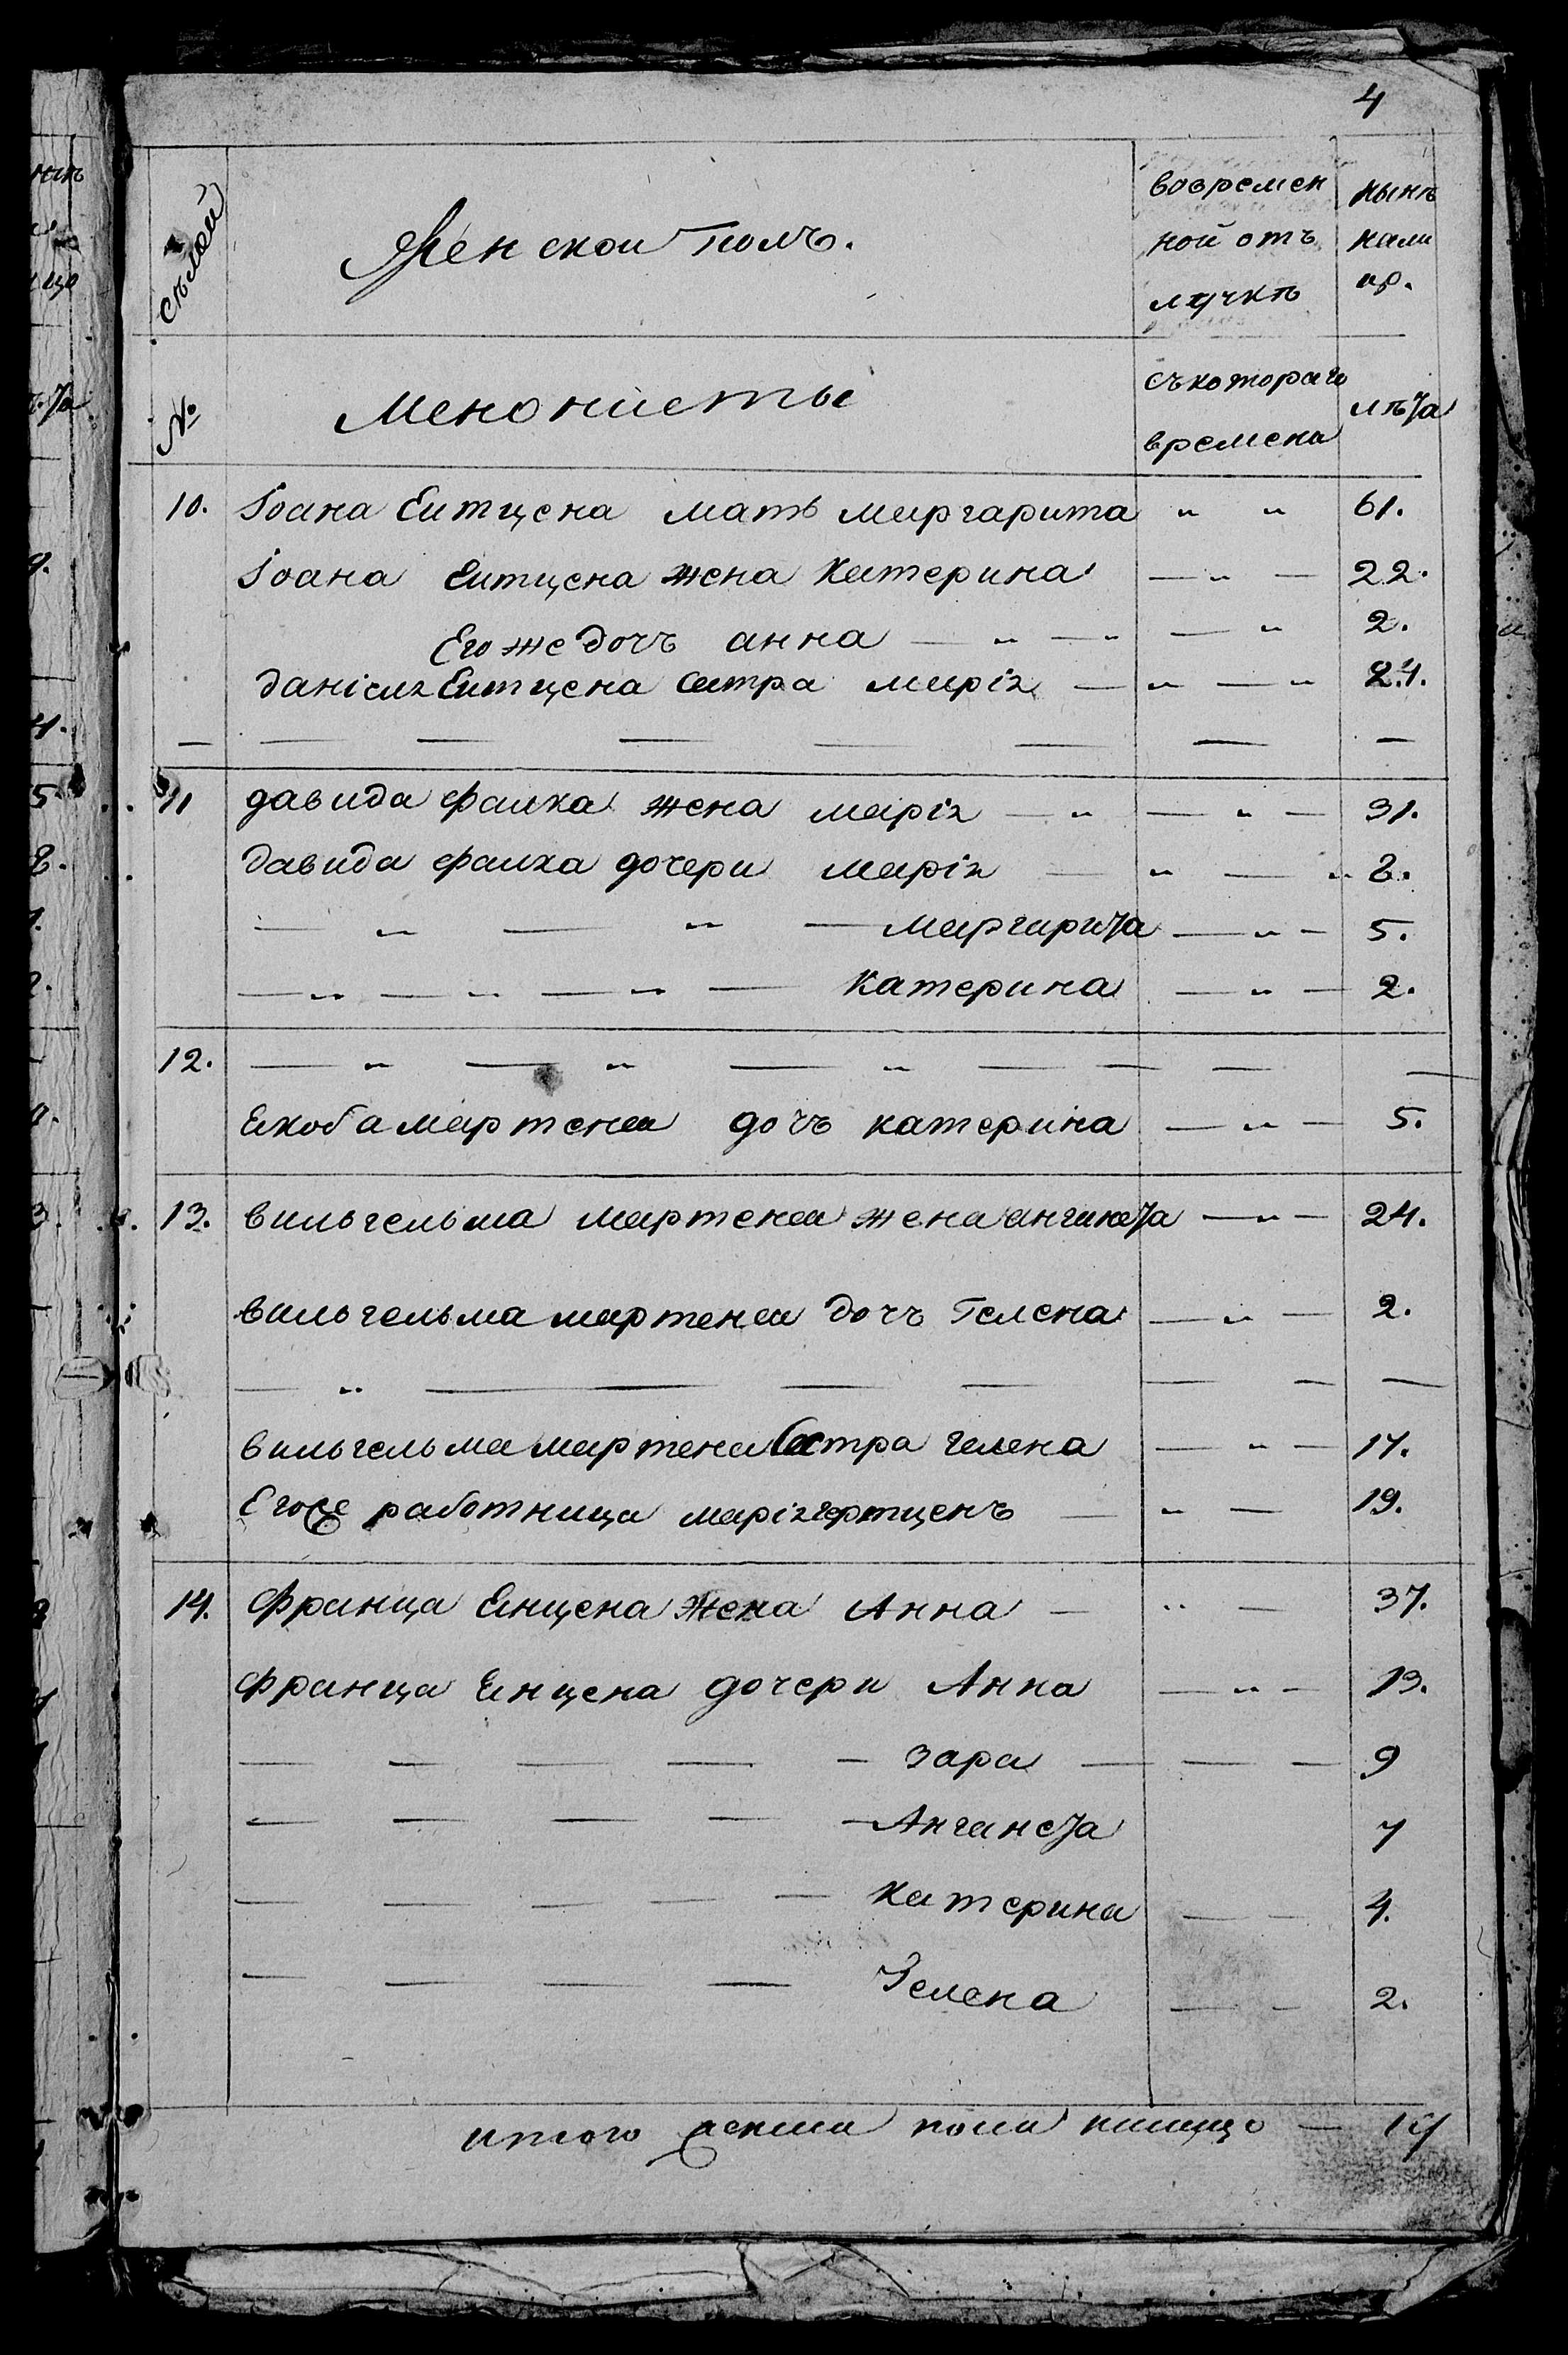 4
№ семей
Женской полъ.
вовремен
ной отъ
лучкѣ
нынѣ
нали
цо.
Менонисты
съкотораго
времена
лѣта
10. Іоана Еитцена мать маргарита " " 61.
Іоана Еитцена жена Катерина — " — 22.
Его же дочь анна — " — " — " 2.
даніила Еитцена сестра маріа — " — " 24.
— — — — — — — —
11 давида фаика жена маріа — " — " — 31.
давида фаика дочери маріа — " — " 8.
— " — " — маргарита — " — 5.
— " — " — " — Катерина — " — 2.
12. — " — " — " — — — —
Якоба мартенса дочъ катерина — " — 5.
13. вильгельма мартенса жена анганета — " — 24.
вильгельма мартенса дочъ Гелена — " — 2.
— " — — — — — — —
вильгельма мартенса сестра гелена — " — 17.
Егоже работница маріа гертценъ — " — 19.
14. франца Енцена жена Анна — " — 37.
франца Енцена дочери Анна — " — 13.
— — — — — зара — — — 9
— — — — — Анганета 7
— — — — — Катерина — — 4.
— — — — Гелена — — 2.
итого женска пола налицо — 19